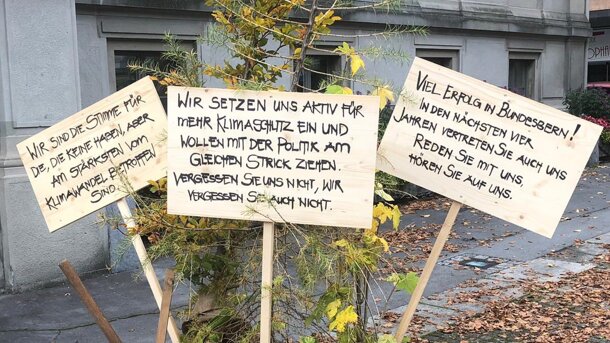 WIR SIND DIE STIMME FÜR
DE, DIE KEINE HABEN, ABER
AM STÄRKSTEN VOM
KLIMAWANDEL BETROFFEN
SIND
WIR SETZEN UNS AKTIV FÜR
MEHR KLIMASCHUTZ EIN UND
WOLLEN MIT DER POLITIK AM
GLEICHEN STRICK ZIEHEN.
VERGESSEN SIE UNS NICHT, WIR
VERGESSEN SIE AUCH NICHT.
VIEL ERFOLG IN BUNDESBERN!
IN DEN NÄCHSTEN VIER
JAHREN VERTRETEN SIE AUCH UNS
REDEN SIE MIT UNS,
HÖREN SIE AUF UNS.